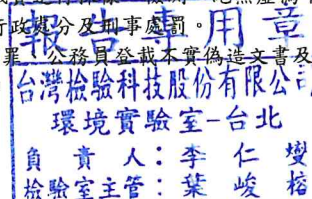 行政處分及刑事處罰。
報告專用章
罪、公務員登載不實偽造文書及
台灣檢驗科技股份有限公司
環境實驗室-台北
負責人：李仁燮
檢驗室主管：葉峻榕